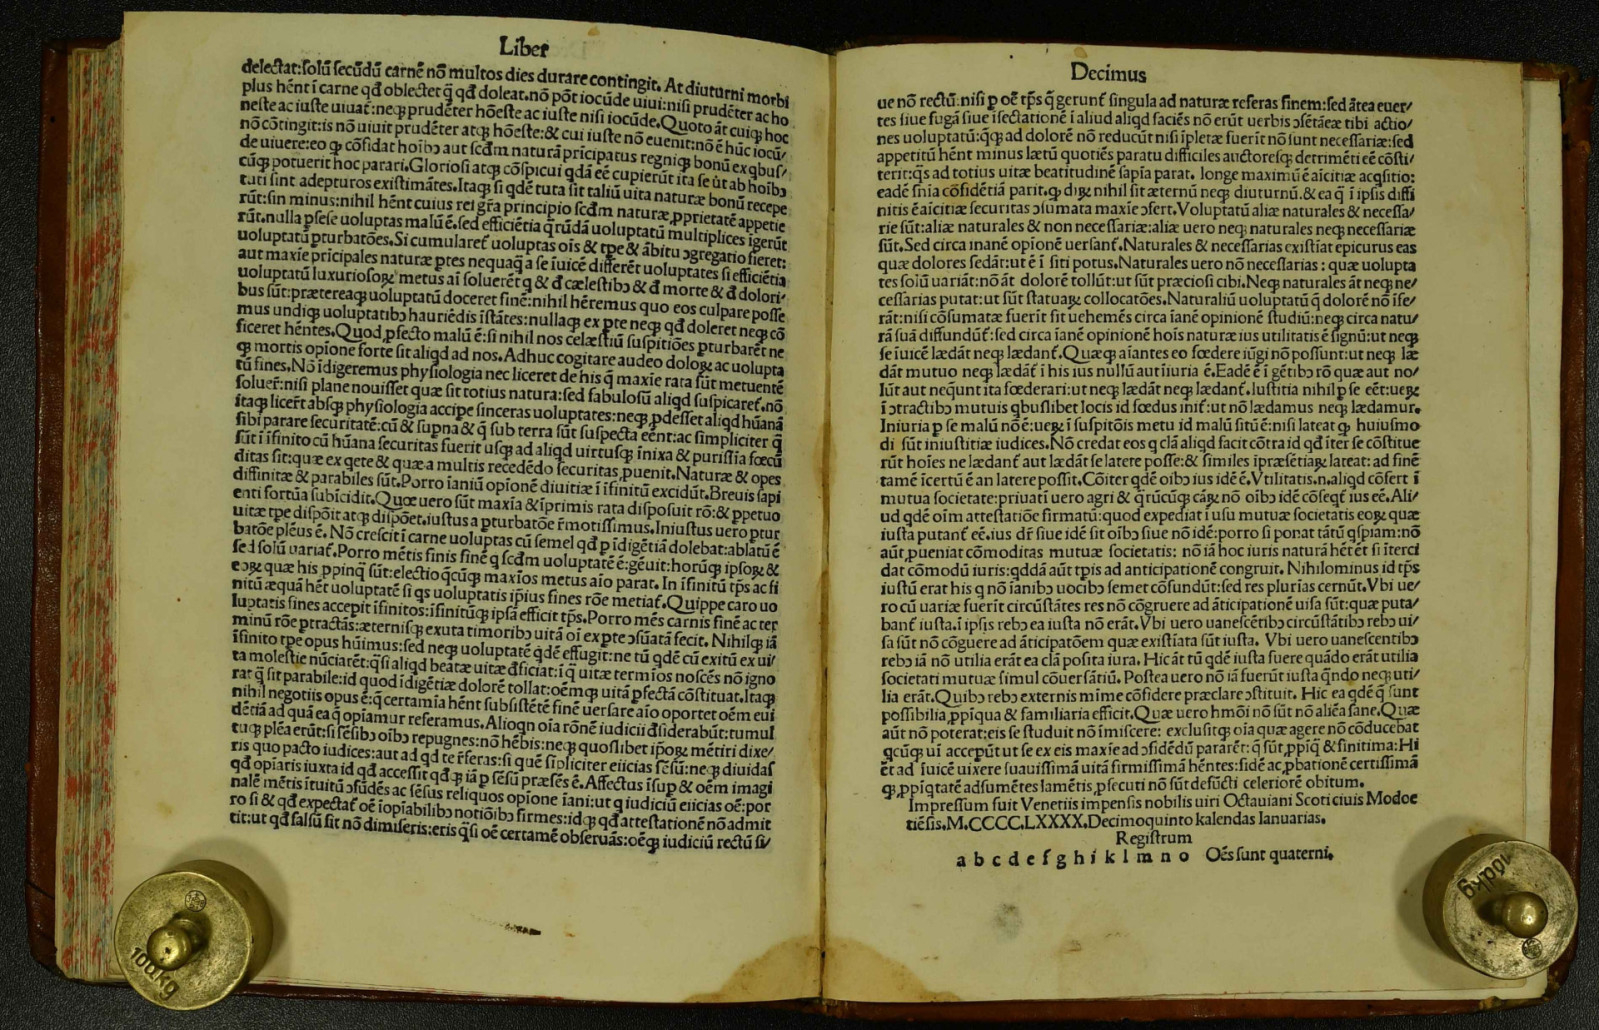 Liber
delectat:solũ secũdũ carnẽ nõ multos dies durare contingit. At diuturni morbi
plus hẽnt ĩ carne qđ oblectet q̃ qđ doleat.nõ põt iocũde uiui:nisi prudẽter ac ho
neste ac iuste uiuat̃:neqꝫ prudẽter hõeste ac iuste nisi iocũde.Quoto ãt cuiqꝫ hoc
nõ cõtingit:is nõ uiuit prudẽter atqꝫ hõeste:& cui iuste nõ euenit:nõ ẽ hũc iocũ/
de uiuere:eo ꝙ cõfidat hoĩbɔ aut scđm naturã prĩcipatus regniqꝫ bonũ ex qbus/
cũqꝫ potuerit hoc parati.Gloriosi atqꝫ cõspicui qdã eẽ cupierũt ita se ũt ab hoĩbɔ
tuti sint adepturos existimãtes.Itaqꝫ si qdẽ tuta sit taliũ uita naturæ bonũ recepe
rũt:sin minus:nihil hẽnt cuius rei gr̃a principio scđm naturæ ꝓprietatẽ appetie
rũt.nulla ꝑ sese uoluptas malũ ẽ.sed efficiẽtia q̃rũdã uoluptatũ multiplices ĩgerũt
uoluptatũ ꝑturbatões.Si cumularet̃ uoluptas oĩs & tꝑe & ãbitu ɔgregatio fieret:
aut maxie pricipales naturæ ꝑtes nequaq̃ a se ĩuicẽ differẽt uoluptates si efficiẽtia
uoluptatũ luxuriosoꝝ metus aĩ soluerẽt q & đ cælestibɔ & đ morte & đ dolori/
bus sũt:prætereaqꝫ uoluptatũ doceret finẽ:nihil hẽremus quo eos culpare posse
mus undiqꝫ uoluptatibɔ hauriẽdis ĩstãtes:nullaqꝫ ex ꝑte neqꝫ qđ doleret neqꝫ cõ
ficeret hẽntes.Quod ꝓfecto malũ ẽ:si nihil nos celæstiũ suspitiões ꝑturbarẽt ne
ꝙ mortis opĩone forte sit aliqd ad nos.Adhuc cogitare audeo doloꝝ ac uolupta
tũ fines.Nõ ĩdigeremus physiologia nec liceret de his q̃ maxie rata sũt metuentẽ
soluer̃:nisi plane nouisset quæ sit totius natura:sed fabulosũ aliqd suspicaret̃.nõ
itaqꝫ licer̃t absqꝫ physiologia accipe sinceras uoluptates:neqꝫ ꝓdesset aliqd hũanã
sibi parare securitatẽ:cũ & supna & q̃ sub terra sũt suspecta eẽnt:ac simpliciter q̃
sũt ĩ ĩfinito cũ hũana securitas fuerit usqꝫ ad aliqd uirtusqꝫ ĩnixa & purissĩa fœcũ
ditas sit:quæ ex qete & quæ a multis recedẽdo securitas ꝓuenit.Naturæ & opes
diffinitæ & parabiles sũt.Porro ĩaniũ opĩonẽ diuitiæ ĩ ĩfinitũ excidũt.Breuis sapi
enti fortũa subicidit.Quæ uero sũt maxĩa & ĩprimis rata disposuit rõ:& ꝑpetuo
uitæ tꝑe dispõit atqꝫ dispõet.iustus a ꝑturbatõe r̃motissimus.Iniustus uero ꝑtur
batõe plẽus ẽ. Nõ crescit ĩ carne uoluptas cũ semel qđ ꝑ ĩdigẽtiã dolebat:ablatũ ẽ
sed solũ uariat̃.Porro mẽtis finis finẽ q scđm uoluptatẽ ẽ:gẽuit:horũqꝫ ipsoꝝ &
eoꝝ quæ his ppinq̃ sũt:electio q̃cũqꝫ maxĩos metus aĩo parat. In ĩfinitũ tp̃s ac fi
nitũ æquã hẽt uoluptatẽ si qs uoluptatis ip̃ius fines rõe metiat̃.Quippe caro uo
luptatis fines accepit ĩfinitos:ĩfinitũqꝫ ipsã efficit tp̃s.Porro mẽs carnis finẽ ac ter
minũ rõe ꝑtractãs:æternisqꝫ exuta timoribɔ uitã oĩ ex ꝑte ɔsũatã fecit. Nihilqꝫ iã
ĩfinito tꝑe opus hũimus:sed neqꝫ uoluptatẽ qdẽ effugit:ne tũ qdẽ cũ exitũ ex ui/
ta molestie nũciarẽt:q̃si aliqd beatæ uitæ đficiat:ĩ q̃ uitæ termĩos noscẽs nõ igno
rat q̃ sit parabile:id quod ĩdigẽtiæ dolorẽ tollat:oẽmqꝫ uitã ꝑfectã cõstituat.Itaqꝫ
nihil negotiis opus ẽ:q̃ certamĩa hẽnt subsistẽtẽ finẽ uersare aĩo oportet oẽm eui
dẽtiã ad quã ea q̃ opĩamur referamus.Alioqn oĩa rõnẽ iudicii đsiderabũt:tumul
tuqꝫ plẽa erũt:si sẽsibɔ oĩbɔ repugnes:nõ hẽbis:neqꝫ quoslibet ip̃oꝝ mẽtiri dixe/
ris quo pacto iudices:aut ad qd te r̃feras:si quẽ sĩpliciter eiicias sẽsũ:neqꝫ diuidas
qđ opĩaris iuxta id qđ accessit qđqꝫ iã ꝑ sẽsũ præsẽs ẽ.Affectus ĩsup & oẽm imagi
nalẽ mẽtis ĩtuitũ ɔfũdẽs ac sẽsus reliquos opĩone ĩani:ut q iudiciũ eiicias oẽ:por
ro si & qđ expectat̃ oẽ ĩopĩabilibɔ notiõibɔ firmes:idqꝫ qđ attestationẽ nõ admit
tit:ut qđ falsũ sit nõ dimiseris:eris q̃si oẽ certamẽ obseruãs:oẽqꝫ iudiciũ rectũ si/
Decimus
ue nõ rectũ:nisi ꝑ oẽ tp̃s q̃ gerunt̃ singula ad naturæ referas finem:sed ãtea euer/
tes siue fugã siue ĩsectationẽ ĩ aliud aliqd faciẽs nõ erũt uerbis ɔsẽtãeæ tibi actio/
nes uoluptatũ:q̃qꝫ ad dolorẽ nõ reducũt nisi ĩpletæ fuerĩt nõ sunt necessariæ:sed
appetitũ hẽnt minus lætũ quotiẽs paratu difficiles auctoresqꝫ detrimẽti eẽ cõsti/
terit:q̃s ad totius uitæ beatitudinẽ sapĩa parat. longe maximũ ẽ aĩcitiæ acqsitio:
eadẽ snĩa cõfidẽtiã parit.ꝙ diꝝ nihil sit æternũ neqꝫ diuturnũ.& ea q̃ ĩ ipsis diffi
nitis ẽ aĩcitiæ securitas ɔsumata maxĩe ɔfert.Voluptatũ aliæ naturales & necessa/
rie sũt:aliæ naturales & non necessariæ:aliæ uero neqꝫ naturales neqꝫ necessariæ
sũt.Sed circa inanẽ opĩonẽ uersant̃.Naturales & necessarias existĩat epicurus eas
quæ dolores sedãt:ut ẽ ĩ siti potus.Naturales uero nõ necessarias : quæ uolupta
tes solũ uariãt:nõ ãt dolorẽ tollũt:ut sũt præciosi cibi.Neqꝫ naturales ãt neqꝫ ne/
cessarias putat:ut sũt statuaꝝ collocatões.Naturaliũ uoluptatũ q̃ dolorẽ nõ ĩfe/
rãt:nisi cõsumatæ fuerĩt sit uehemẽs circa ĩanẽ opinionẽ studiũ:neqꝫ circa natu/
rã suã diffundũt̃:sed circa ĩanẽ opinionẽ hoĩs naturæ ius utilitatis ẽ signũ:ut neqꝫ
se ĩuicẽ lædãt neqꝫ lædant̃.Quæqꝫ aĩantes eo fœdere iũgi nõ possunt:ut neqꝫ læ
dãt mutuo neqꝫ lædãt̃ ĩ his ius nullũ aut ĩiuria ẽ.Eadẽ ẽ ĩ gẽtibɔ rõ quæ aut no/
lũt aut neq̃unt ita fœderari:ut neqꝫ lædãt neqꝫ lædant̃.Iustitia nihil ꝑ se eẽt:ueꝝ
ĩ ɔtractibɔ mutuis qbuslibet locis id fœdus init̃:ut nõ lædamus neqꝫ lædamur.
Iniuria ꝑ se malũ nõ ẽ:ueꝝ ĩ suspitõis metu id malũ sitũ ẽ:nisi lateat ꝙ huiusmo
di sũt iniustitiæ iudices.Nõ credat eos q clã aliqd facit cõtra id qđ ĩter se cõstitue
rũt hoĩes ne lædant̃ aut lædãt se latere posse:& similes ĩpræsẽtiaꝝ lateat: ad finẽ
tamẽ ĩcertũ ẽ an latere possit.Cõiter qdẽ oĩbɔ ius idẽ ẽ.Vtilitatis.n.aliqd cõfert ĩ
mutua societate:priuati uero agri & q̃rũcũqꝫ cãꝝ nõ oĩbɔ idẽ cõseqt̃ ius eẽ.Ali/
ud qdẽ oĩm attestatiõe firmatũ:quod expediat ĩ usu mutuæ societatis eoꝝ quæ
iusta putant̃ eẽ.ius dr̃ siue idẽ sit oĩbɔ siue nõ idẽ:porro si ponat tãtũ qspiam:nõ
aũt ꝓueniat cõmoditas mutuæ societatis: nõ iã hoc iuris naturã hẽt ẽt si ĩterci
dat cõmodũ iuris:qddã aũt tꝑis ad anticipationẽ congruit. Nihilominus id tp̃s
iustũ erat his q nõ ĩanibɔ uocibɔ semet cõfundũt:sed res plurĩas cernũt.Vbi ue/
ro cũ uariæ fuerĩt circũstãtes res nõ cõgruere ad ãticipationẽ uisa sũt:quæ puta/
bant̃ iusta.ĩ ipsis rebɔ ea iusta nõ erãt.Vbi uero uanescẽtibɔ circũstãtibɔ rebɔ ui/
sa sũt nõ cõguere ad ãticipatõem quæ existĩata sũt iusta. Vbi uero uanescentibɔ
rebɔ iã nõ utilia erãt ea clã posita iura. Hic ãt tũ qdẽ iusta fuere quãdo erãt utilia
societati mutuæ simul cõuersãtiũ. Postea uero nõ iã fuerũt iusta q̃ndo neqꝫ uti/
lia erãt.Quibɔ rebɔ externis mĩme cõfidere præclare ɔstituit. Hic ea qdẽ q̃ sunt
possibilia ꝓpĩqua & familiaria efficit.Quæ uero hmõi nõ sũt nõ aliẽa sane.Quæ
aũt nõ poterat:eis se studuit nõ ĩmiscere: exclusitqꝫ oĩa quæ agere nõ cõducebat
qcũqꝫ ui accepũt ut se ex eis maxĩe ad ɔfidẽdũ pararẽt: q̃ sũt ꝓpĩq̃ & finitima:Hi
ẽt ad ĩuicẽ uixere suauissimã uitã firmissimã hẽntes:fidẽ ac ꝓbationẽ certissimã
qꝫ ꝓpĩqtatẽ adsumẽtes lamẽtis ꝓsecuti nõ sũt defũcti celeriorẽ obitum.
Impressum fuit Venetiis impensis nobilis uiri Octauiani Scoti ciuis Modoe
tiẽsis.M.CCCC.LXXXX.Decimoquinto kalendas Ianuarias.
Registrum
a b c d e f g h i k l m n o Oẽs sunt quaterni.
100kg
100kg